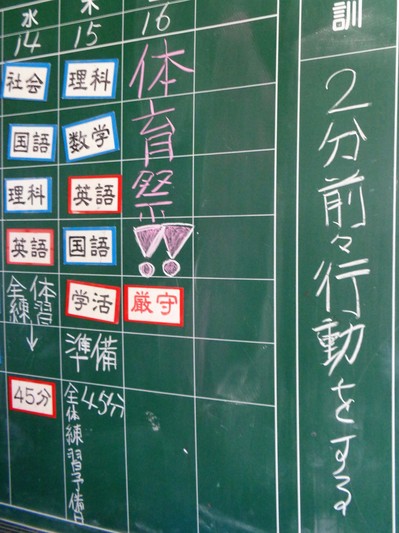 訓
2分前々行動をする
水
14
社会
国語
理科
英語
全体
練習
↓
45分
木
15
理科
数学
英語
国語
学活
準備
45分
全体練習予備
16
体育祭!!
厳守